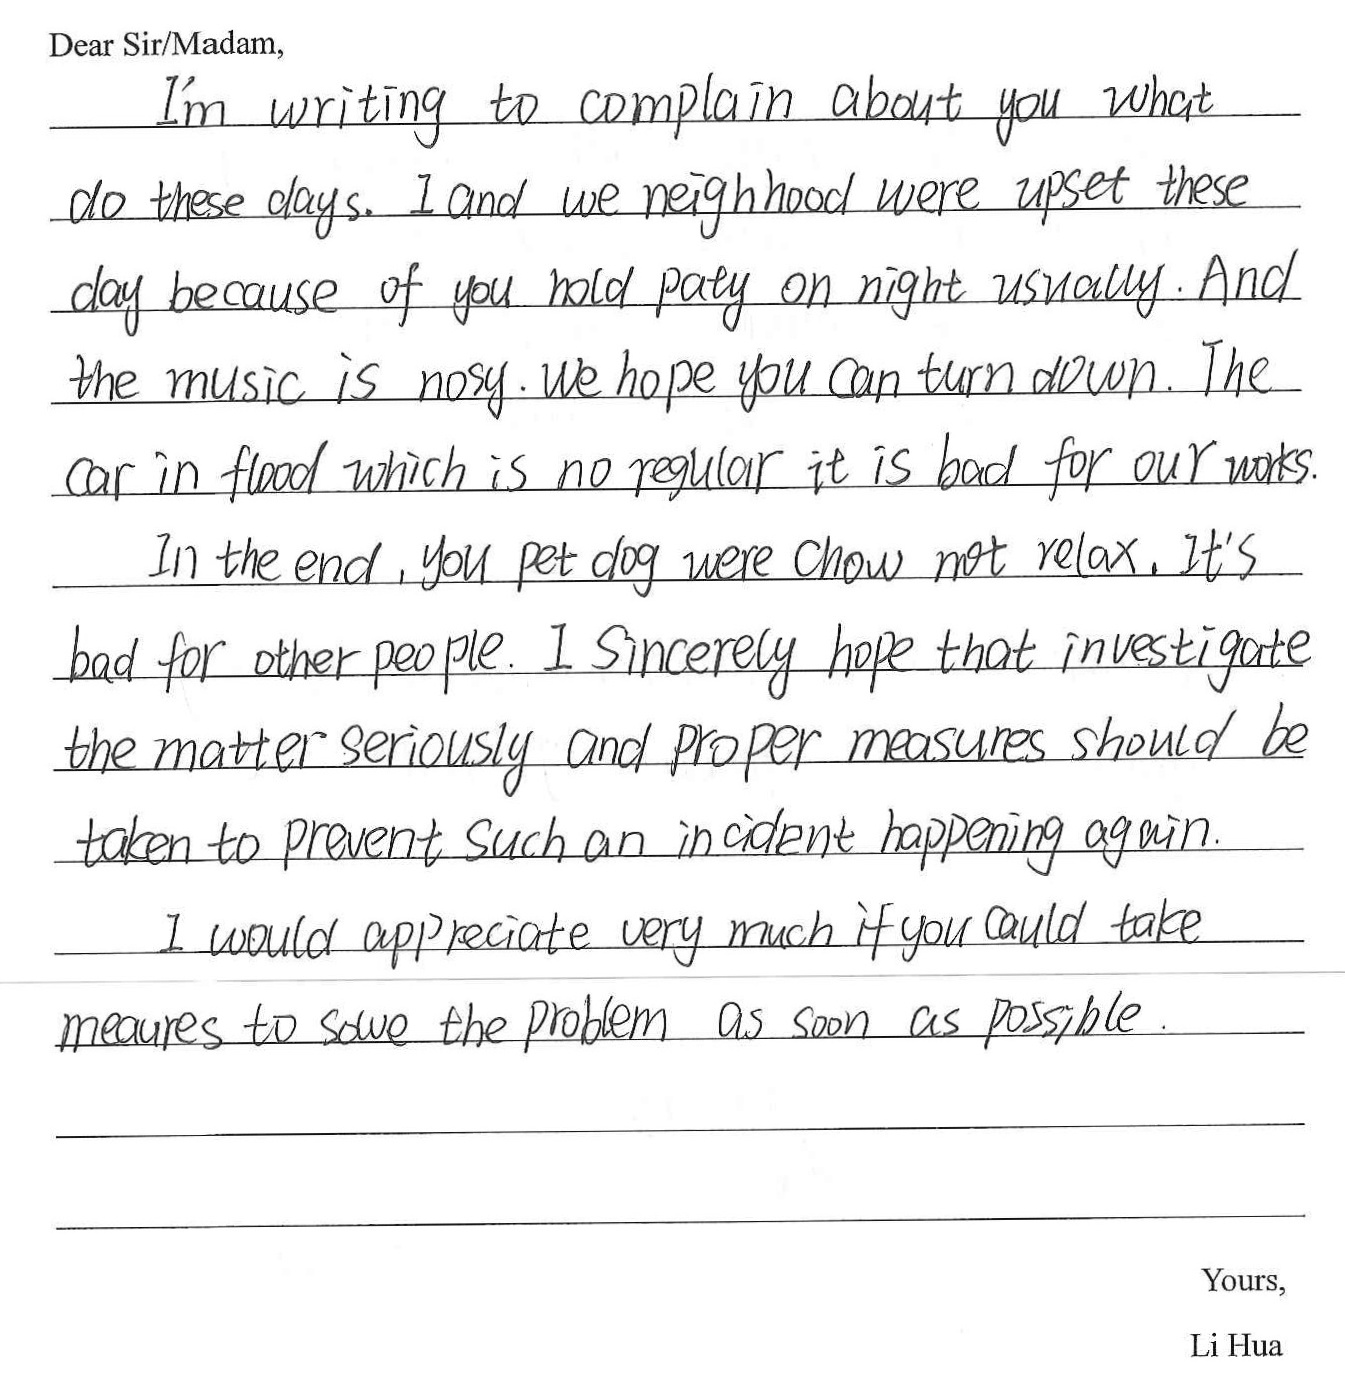 Dear Sir/Madam,
I'm writing to complain about you what
do these days. I and we neighhood were upset these
day because of you hold paty on night usually. And
the music is nosy. We hope you can turn down. The
car in flood which is no regular it is bad for our works.
In the end, you pet dog were Chow not relax. It's
bad for other people. I Sincerely hope that investigate
the matter seriously and proper measures should be
taken to prevent such an incident happening again.
I would appreciate very much if you cauld take
meaures to solve the problem as soon as possible.
Yours,
Li Hua